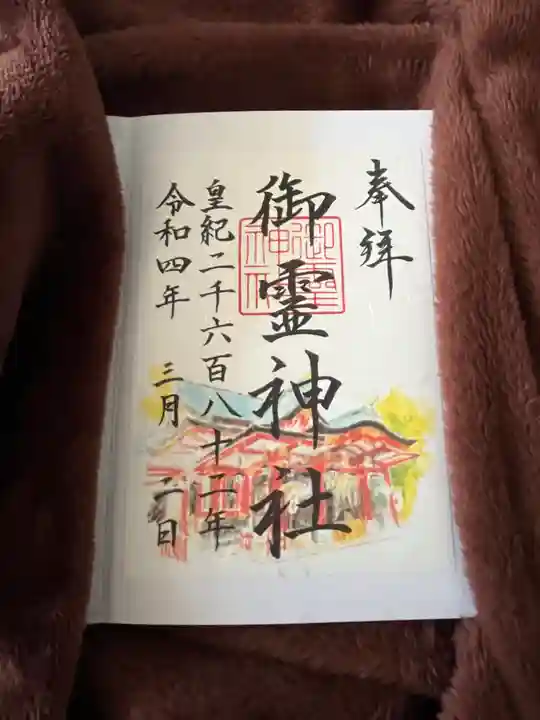 奉拝
御霊神社
御霊神社
皇紀二千六百八十二年
令和四年 三月 二日